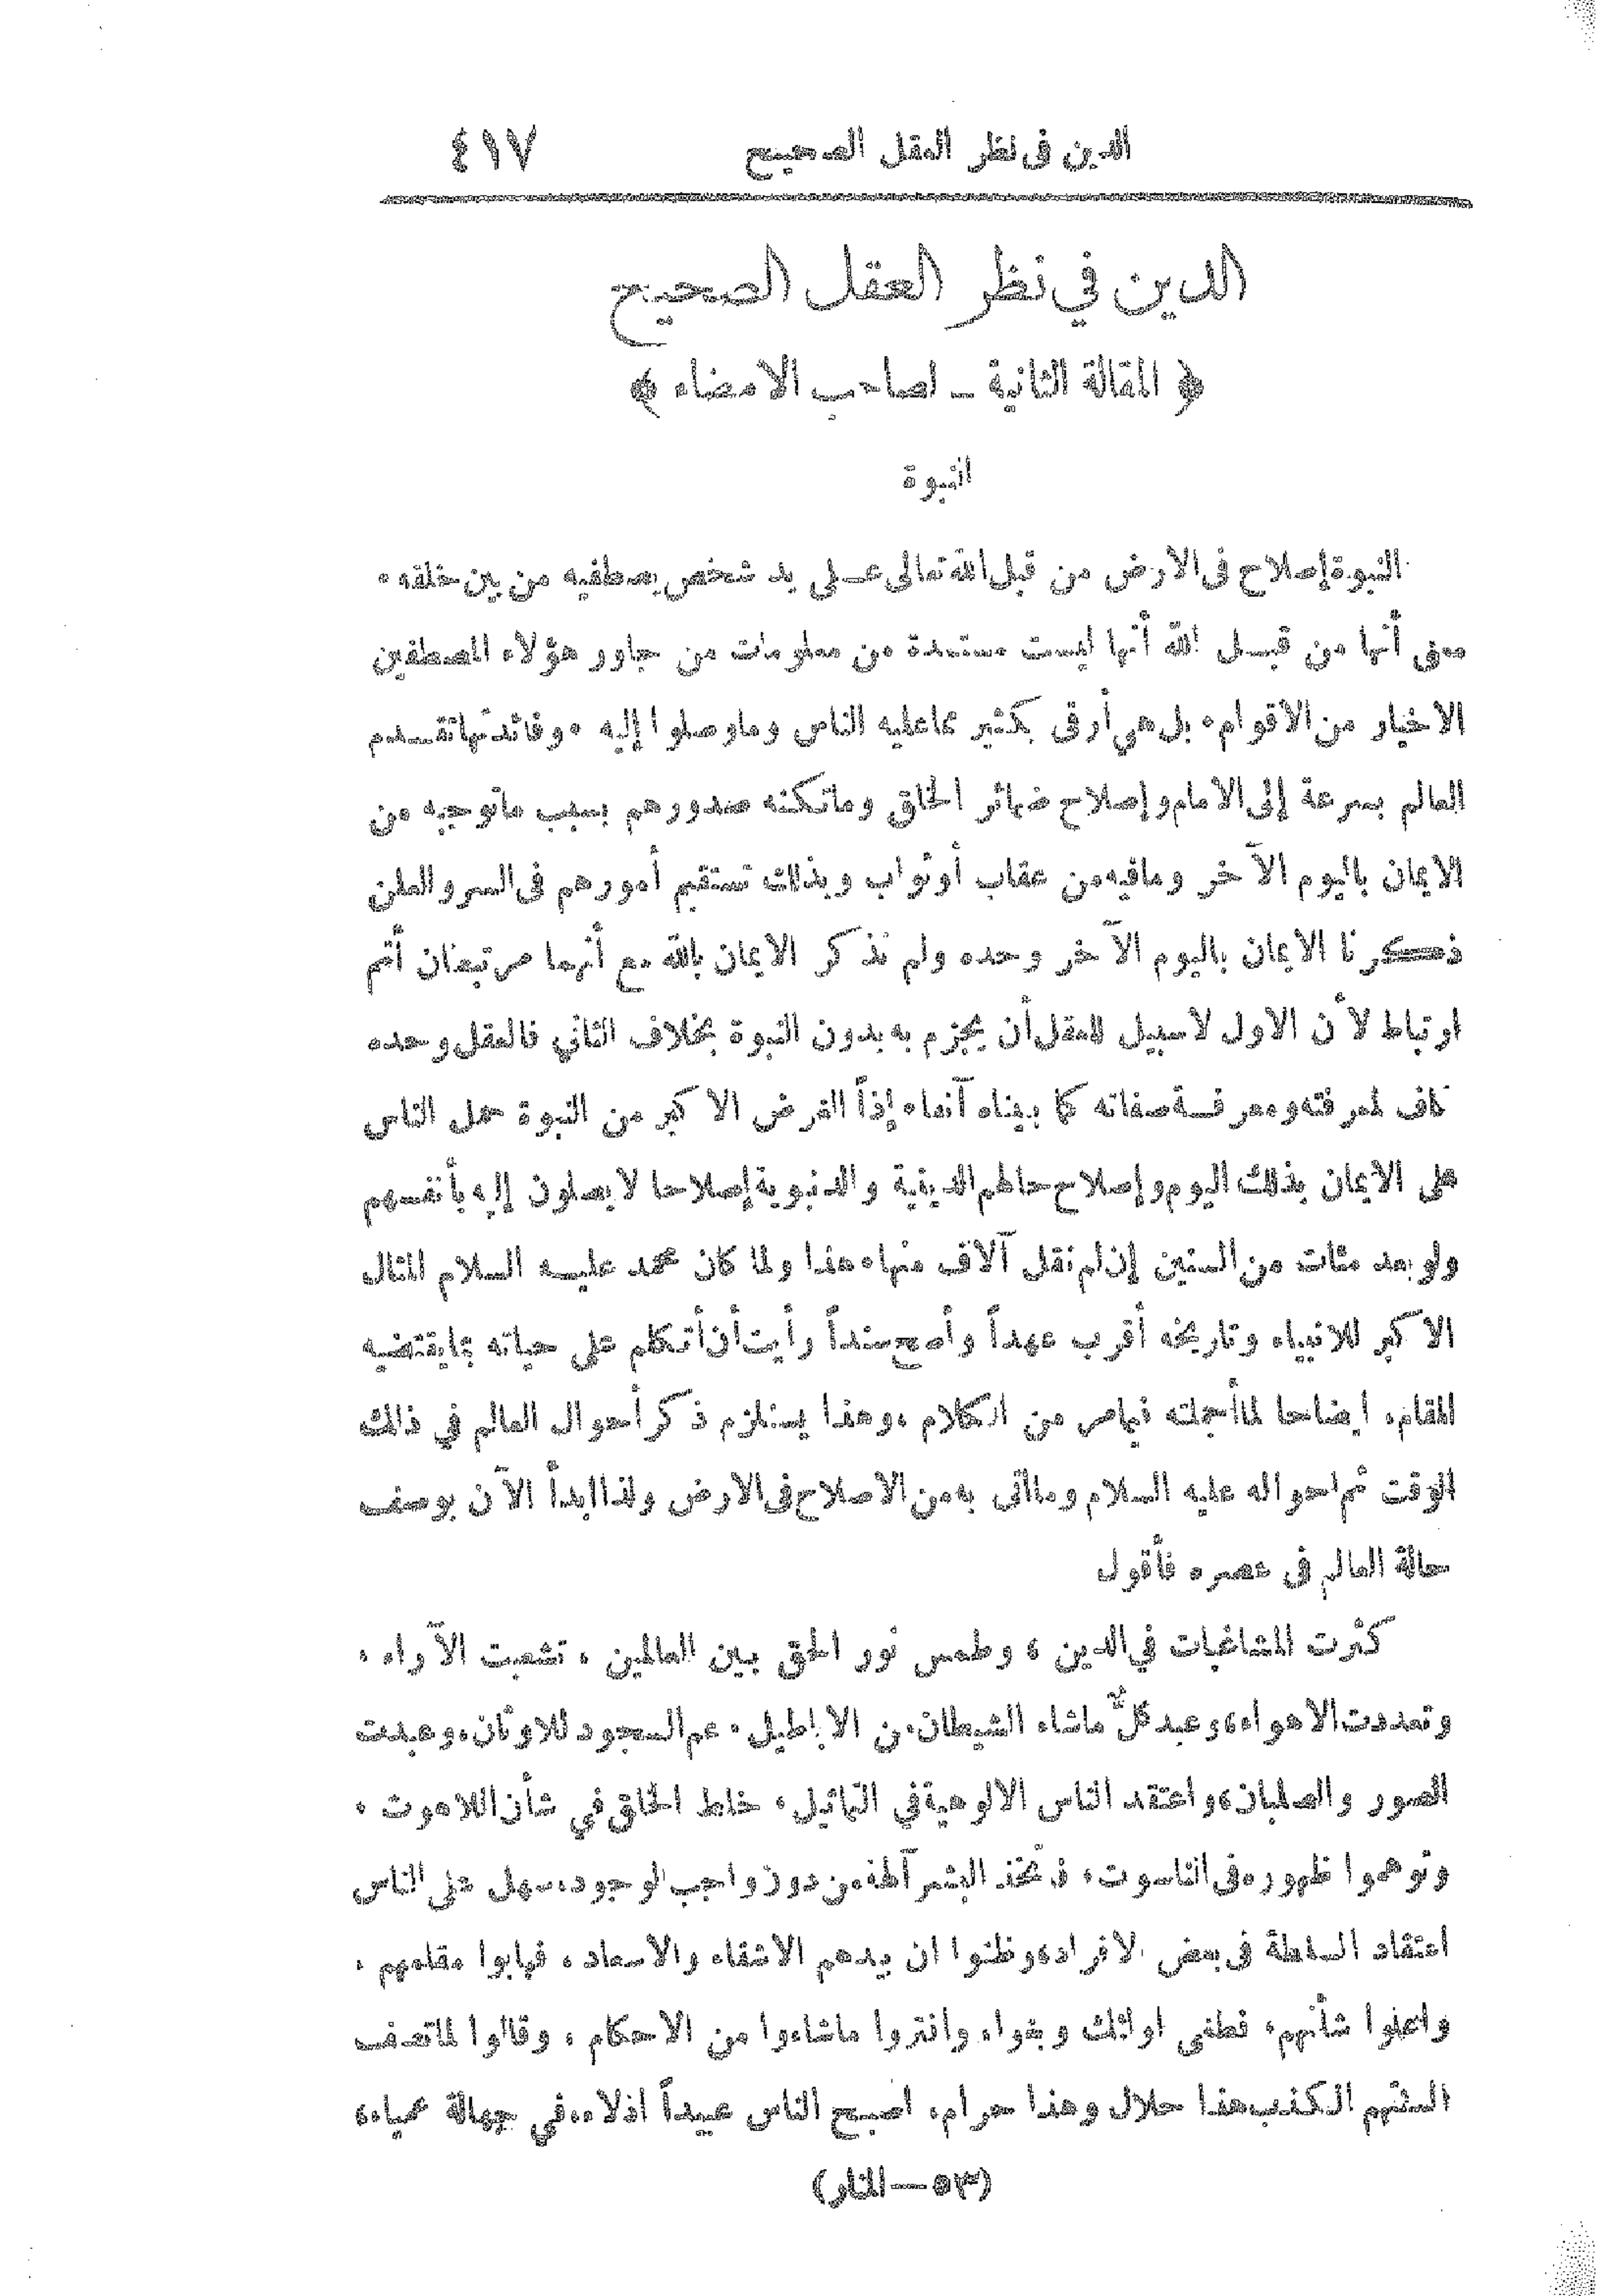 الدين فى نظر العقل الصحيح ٤١٧
الدين في نظر العقل الصحيح
﴿ المقالة الثانية ـ لصاحب الامضاء ﴾
النبوة
النبوة إصلاح فى الارض من قبل الله تعالى على يد شخص يصطفيه من بين خلقه ٠
معنى أنها من قبل الله أنها ليست مستمدة من معلومات من جاور هؤلاء المصطفين
الاخيار من الاقوام ٠ بل هي أرقى بكثير مما عليه الناس وما وصلوا إليه ٠ وفائدتها تقدم
العالم بسرعة إلى الامام وإصلاح ضمائر الخلق وما تكنه صدورهم بسبب ما توجبه من
الايمان باليوم الآخر وما فيه من عقاب أو ثواب وبذلك تستقيم أمورهم فى السر والعلن
ذكرنا الايمان باليوم الآخر وحده ولم نذكر الايمان بالله مع أنهما مرتبطان أتم
ارتباط لأن الاول لا سبيل للعقل أن يجزم به بدون النبوة بخلاف الثاني فالعقل وحده
كاف لمعرفته ومعرفة صفاته كما بيناه آنفا ٠ إذاً الغرض الاكبر من النبوة حمل الناس
على الايمان بذلك اليوم وإصلاح حالهم الدينية والدنيوية إصلاحا لا يصلون إليه بأنفسهم
ولو بعد مئات من السنين إن لم نقل آلاف منها ٠ هذا ولما كان محمد عليه السلام المثال
الاكبر للانبياء وتاريخه أقرب عهداً وأصح سنداً رأيت أن أتكلم على حياته بما يقتضيه
المقام ٠ ايضاحا لما أجملته فيما مر من الكلام ، وهذا يستلزم ذكر أحوال العالم في ذلك
الوقت ثم احواله عليه السلام وما أتى به من الاصلاح فى الارض ولذا ابدأ الآن بوصف
حالة العالم فى عصره فأقول
كثرت المشاغبات في الدين ، وطمس نور الحق بين العالمين ، تشعبت الآراء ،
وتعددت الاهواء ، وعبد كلٌّ ما شاء الشيطان من الاباطيل ٠ عم السجود للاوثان ، وعبدت
الصور والصلبان ، واعتقد الناس الالوهية في التماثيل ، خلط الخلق في شأن اللاهوت ،
وتوهموا ظهوره فى الناسوت ، فاتخذ البشر آلهة من دون واجب الوجود ، سهل على الناس
اعتقاد السلطة فى بعض الافراد ، وظنوا ان بيدهم الاشقاء والاسعاد ، فهابوا مقامهم ،
واعلوا شأنهم ، فطغى اولئك وبغوا ، وافتروا ما شاءوا من الاحكام ، وقالوا لما تصف
السنتهم الكذب هذا حلال وهذا حرام ، اصبح الناس عبيداً اذلاء ، في جهالة عمياء ،
(٥٣ — المنار)